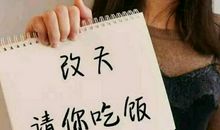 改天
请你吃饭